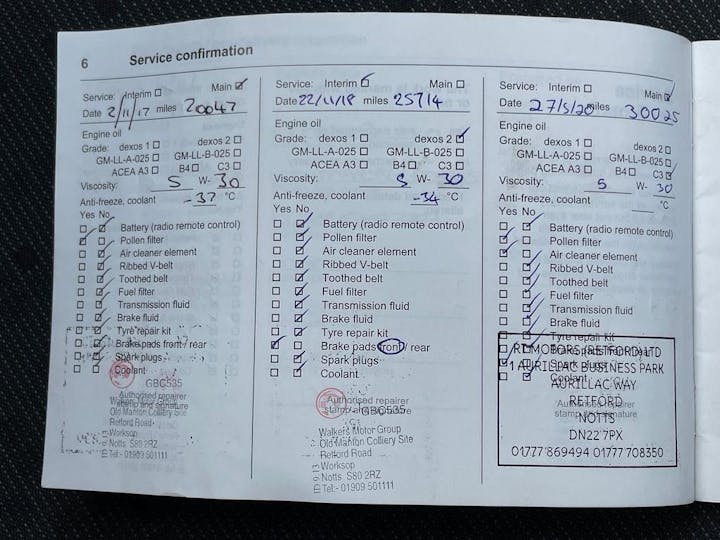 6 Service confirmation
Service: Interim ☐ Main ☑
Date 2/11/17 miles 20047
Engine oil
Grade: dexos 1 ☐ dexos 2 ☐
GM-LL-A-025 ☐ GM-LL-B-025 ☐
ACEA A3 ☐ B4 ☐ C3 ☐
Viscosity: 5 W- 30
Anti-freeze, coolant -37 °C
Yes No
Battery (radio remote control)
Pollen filter
Air cleaner element
Ribbed V-belt
Toothed belt
Fuel filter
Transmission fluid
Brake fluid
Tyre repair kit
Brake pads front / rear
Spark plugs
Coolant
GBC535
Authorised repairer
stamp and signature
Walkers Motor Group
Old Manton Colliery Site
Retford Road
Worksop
Notts S80 2RZ
Tel:- 01909 501111
Service: Interim ☑ Main ☐
Date 22/11/18 miles 25714
Engine oil
Grade: dexos 1 ☐ dexos 2 ☑
GM-LL-A-025 ☐ GM-LL-B-025 ☐
ACEA A3 ☐ B4 ☐ C3 ☐
Viscosity: 5 W- 30
Anti-freeze, coolant -34 °C
Yes No
Battery (radio remote control)
Pollen filter
Air cleaner element
Ribbed V-belt
Toothed belt
Fuel filter
Transmission fluid
Brake fluid
Tyre repair kit
Brake pads front / rear
Spark plugs
Coolant
Authorised repairer
stamp and signature
GBC535
Walkers Motor Group
Old Manton Colliery Site
Retford Road
Worksop
Notts S80 2RZ
Tel:- 01909 501111
Service: Interim ☐ Main ☑
Date 27/5/20 miles 30025
Engine oil
Grade: dexos 1 ☐ dexos 2 ☐
GM-LL-A-025 ☐ GM-LL-B-025 ☐
ACEA A3 ☐ B4 ☐ C3 ☑
Viscosity: 5 W- 30
Anti-freeze, coolant °C
Yes No
Battery (radio remote control)
Pollen filter
Air cleaner element
Ribbed V-belt
Toothed belt
Fuel filter
Transmission fluid
Brake fluid
Tyre repair kit
Brake pads front / rear
Spark plugs
Coolant
Authorised repairer
stamp and signature
RT MOTORS (RETFORD) LTD
1 AURILLAC BUSINESS PARK
AURILLAC WAY
RETFORD
NOTTS
DN22 7PX
01777 869494 01777 708350